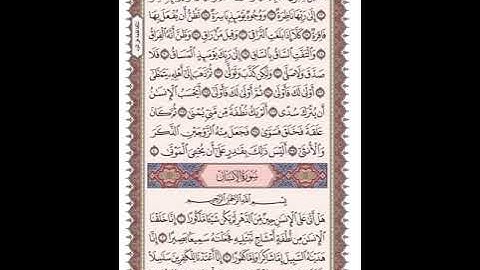 إِلَىٰ رَبِّهَا نَاظِرَةٌ ۝٢٣ وَوُجُوهٌ يَوْمَئِذٍ بَاسِرَةٌ ۝٢٤ تَظُنُّ أَن يُفْعَلَ بِهَا
فَاقِرَةٌ ۝٢٥ كَلَّا إِذَا بَلَغَتِ التَّرَاقِيَ ۝٢٦ وَقِيلَ مَنْ رَاقٍ ۝٢٧ وَظَنَّ أَنَّهُ الْفِرَاقُ ۝٢٨
وَالْتَفَّتِ السَّاقُ بِالسَّاقِ ۝٢٩ إِلَىٰ رَبِّكَ يَوْمَئِذٍ الْمَسَاقُ ۝٣٠ فَلَا
صَدَّقَ وَلَا صَلَّىٰ ۝٣١ وَلَٰكِن كَذَّبَ وَتَوَلَّىٰ ۝٣٢ ثُمَّ ذَهَبَ إِلَىٰ أَهْلِهِ يَتَمَطَّىٰ ۝٣٣
أَوْلَىٰ لَكَ فَأَوْلَىٰ ۝٣٤ ثُمَّ أَوْلَىٰ لَكَ فَأَوْلَىٰ ۝٣٥ أَيَحْسَبُ الْإِنسَانُ
أَن يُتْرَكَ سُدًى ۝٣٦ أَلَمْ يَكُ نُطْفَةً مِّن مَّنِيٍّ يُمْنَىٰ ۝٣٧ ثُمَّ كَانَ
عَلَقَةً فَخَلَقَ فَسَوَّىٰ ۝٣٨ فَجَعَلَ مِنْهُ الزَّوْجَيْنِ الذَّكَرَ
وَالْأُنثَىٰ ۝٣٩ أَلَيْسَ ذَٰلِكَ بِقَادِرٍ عَلَىٰ أَن يُحْيِيَ الْمَوْتَىٰ ۝٤٠
سُورَةُ الْإِنسَانِ
بِسْمِ اللَّهِ الرَّحْمَٰنِ الرَّحِيمِ
هَلْ أَتَىٰ عَلَى الْإِنسَانِ حِينٌ مِّنَ الدَّهْرِ لَمْ يَكُن شَيْئًا مَّذْكُورًا ۝١ إِنَّا خَلَقْنَا
الْإِنسَانَ مِن نُّطْفَةٍ أَمْشَاجٍ نَّبْتَلِيهِ فَجَعَلْنَاهُ سَمِيعًا بَصِيرًا ۝٢ إِنَّا
هَدَيْنَاهُ السَّبِيلَ إِمَّا شَاكِرًا وَإِمَّا كَفُورًا ۝٣ إِنَّا أَعْتَدْنَا لِلْكَافِرِينَ سَلَاسِلَا